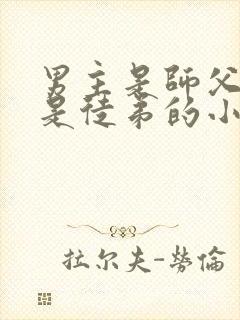 男主是師父
是徒弟的小
拉尔夫-勞倫